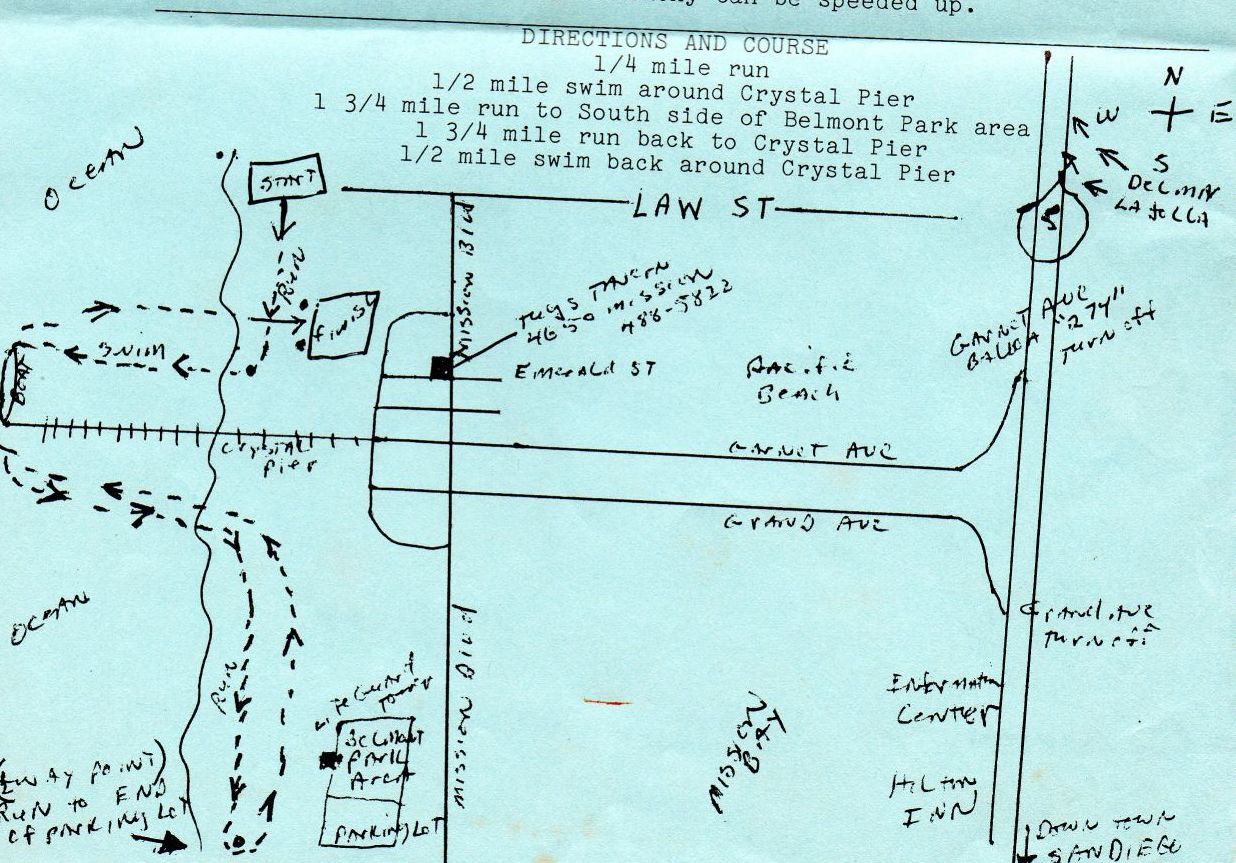 can be speeded up.
DIRECTIONS AND COURSE
1/4 mile run
1/2 mile swim around Crystal Pier
1 3/4 mile run to South side of Belmont Park area
1 3/4 mile run back to Crystal Pier
1/2 mile swim back around Crystal Pier
N
W
E
S
DEL MAR
LA JOLLA
5
OCEAN
START
LAW ST
MISSION Blvd
RUN
FINISH
TUGS TAVERN
4650 MISSION
488-5822
GARNET AVE
BALBOA "274"
TURN off
SWIM
BOAT
EMERALD ST
PACIFIC
BEACH
CRYSTAL
PIER
GARNET AVE
GRAND AVE
OCEAN
GRAND AVE
TURN off
RUN
LIFEGUARD
TOWER
BELMONT
PARK
AREA
PARKING LOT
MISSION Blvd
MISSION
BAY
INFORMATION
CENTER
HILTON
INN
WAY POINT)
RUN TO END
OF PARKING LOT
DOWN TOWN
SAN DIEGO